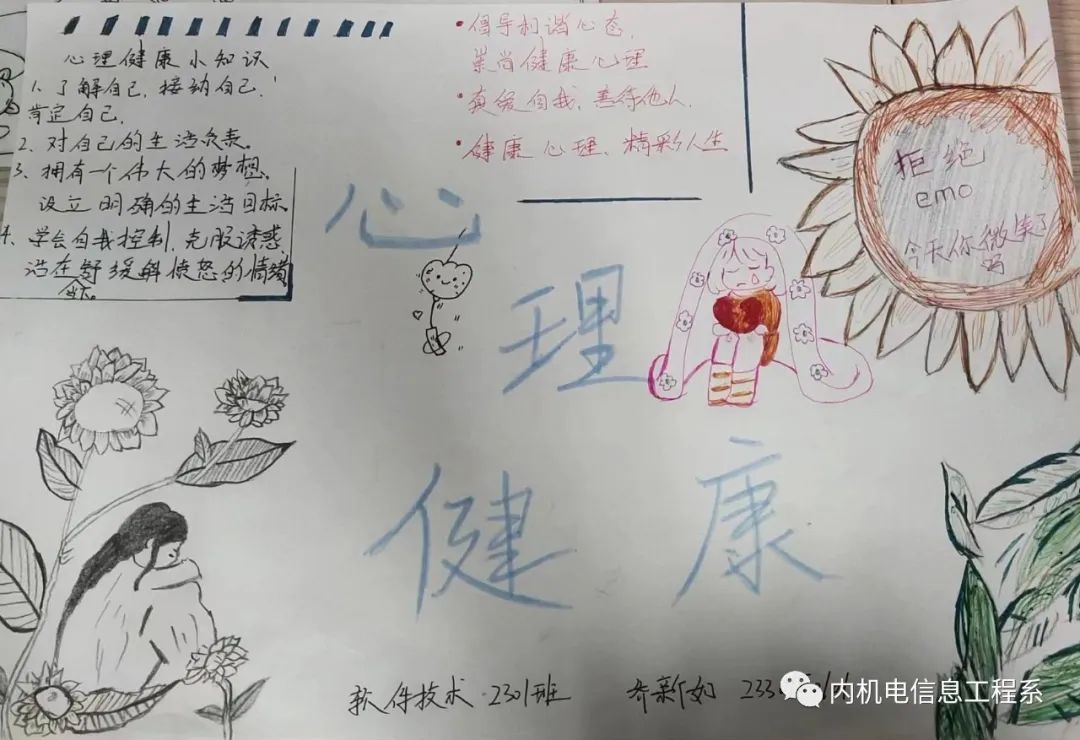 心理健康小知识
1.了解自己,接纳自己,
肯定自己,
2.对自己的生活负责。
3.拥有一个伟大的梦想。
设立明确的生活目标
4.学会自我控制,克服诱惑
活在舒缓解愤怒的情绪
当下。
•倡导和谐心态,
崇尚健康心理
•真爱自我,善待他人
•健康心理、精彩人生
拒绝
emo
今天你微笑了
吗
心
理
健康
软件技术·2301班 乔新如 233
内机电信息工程系